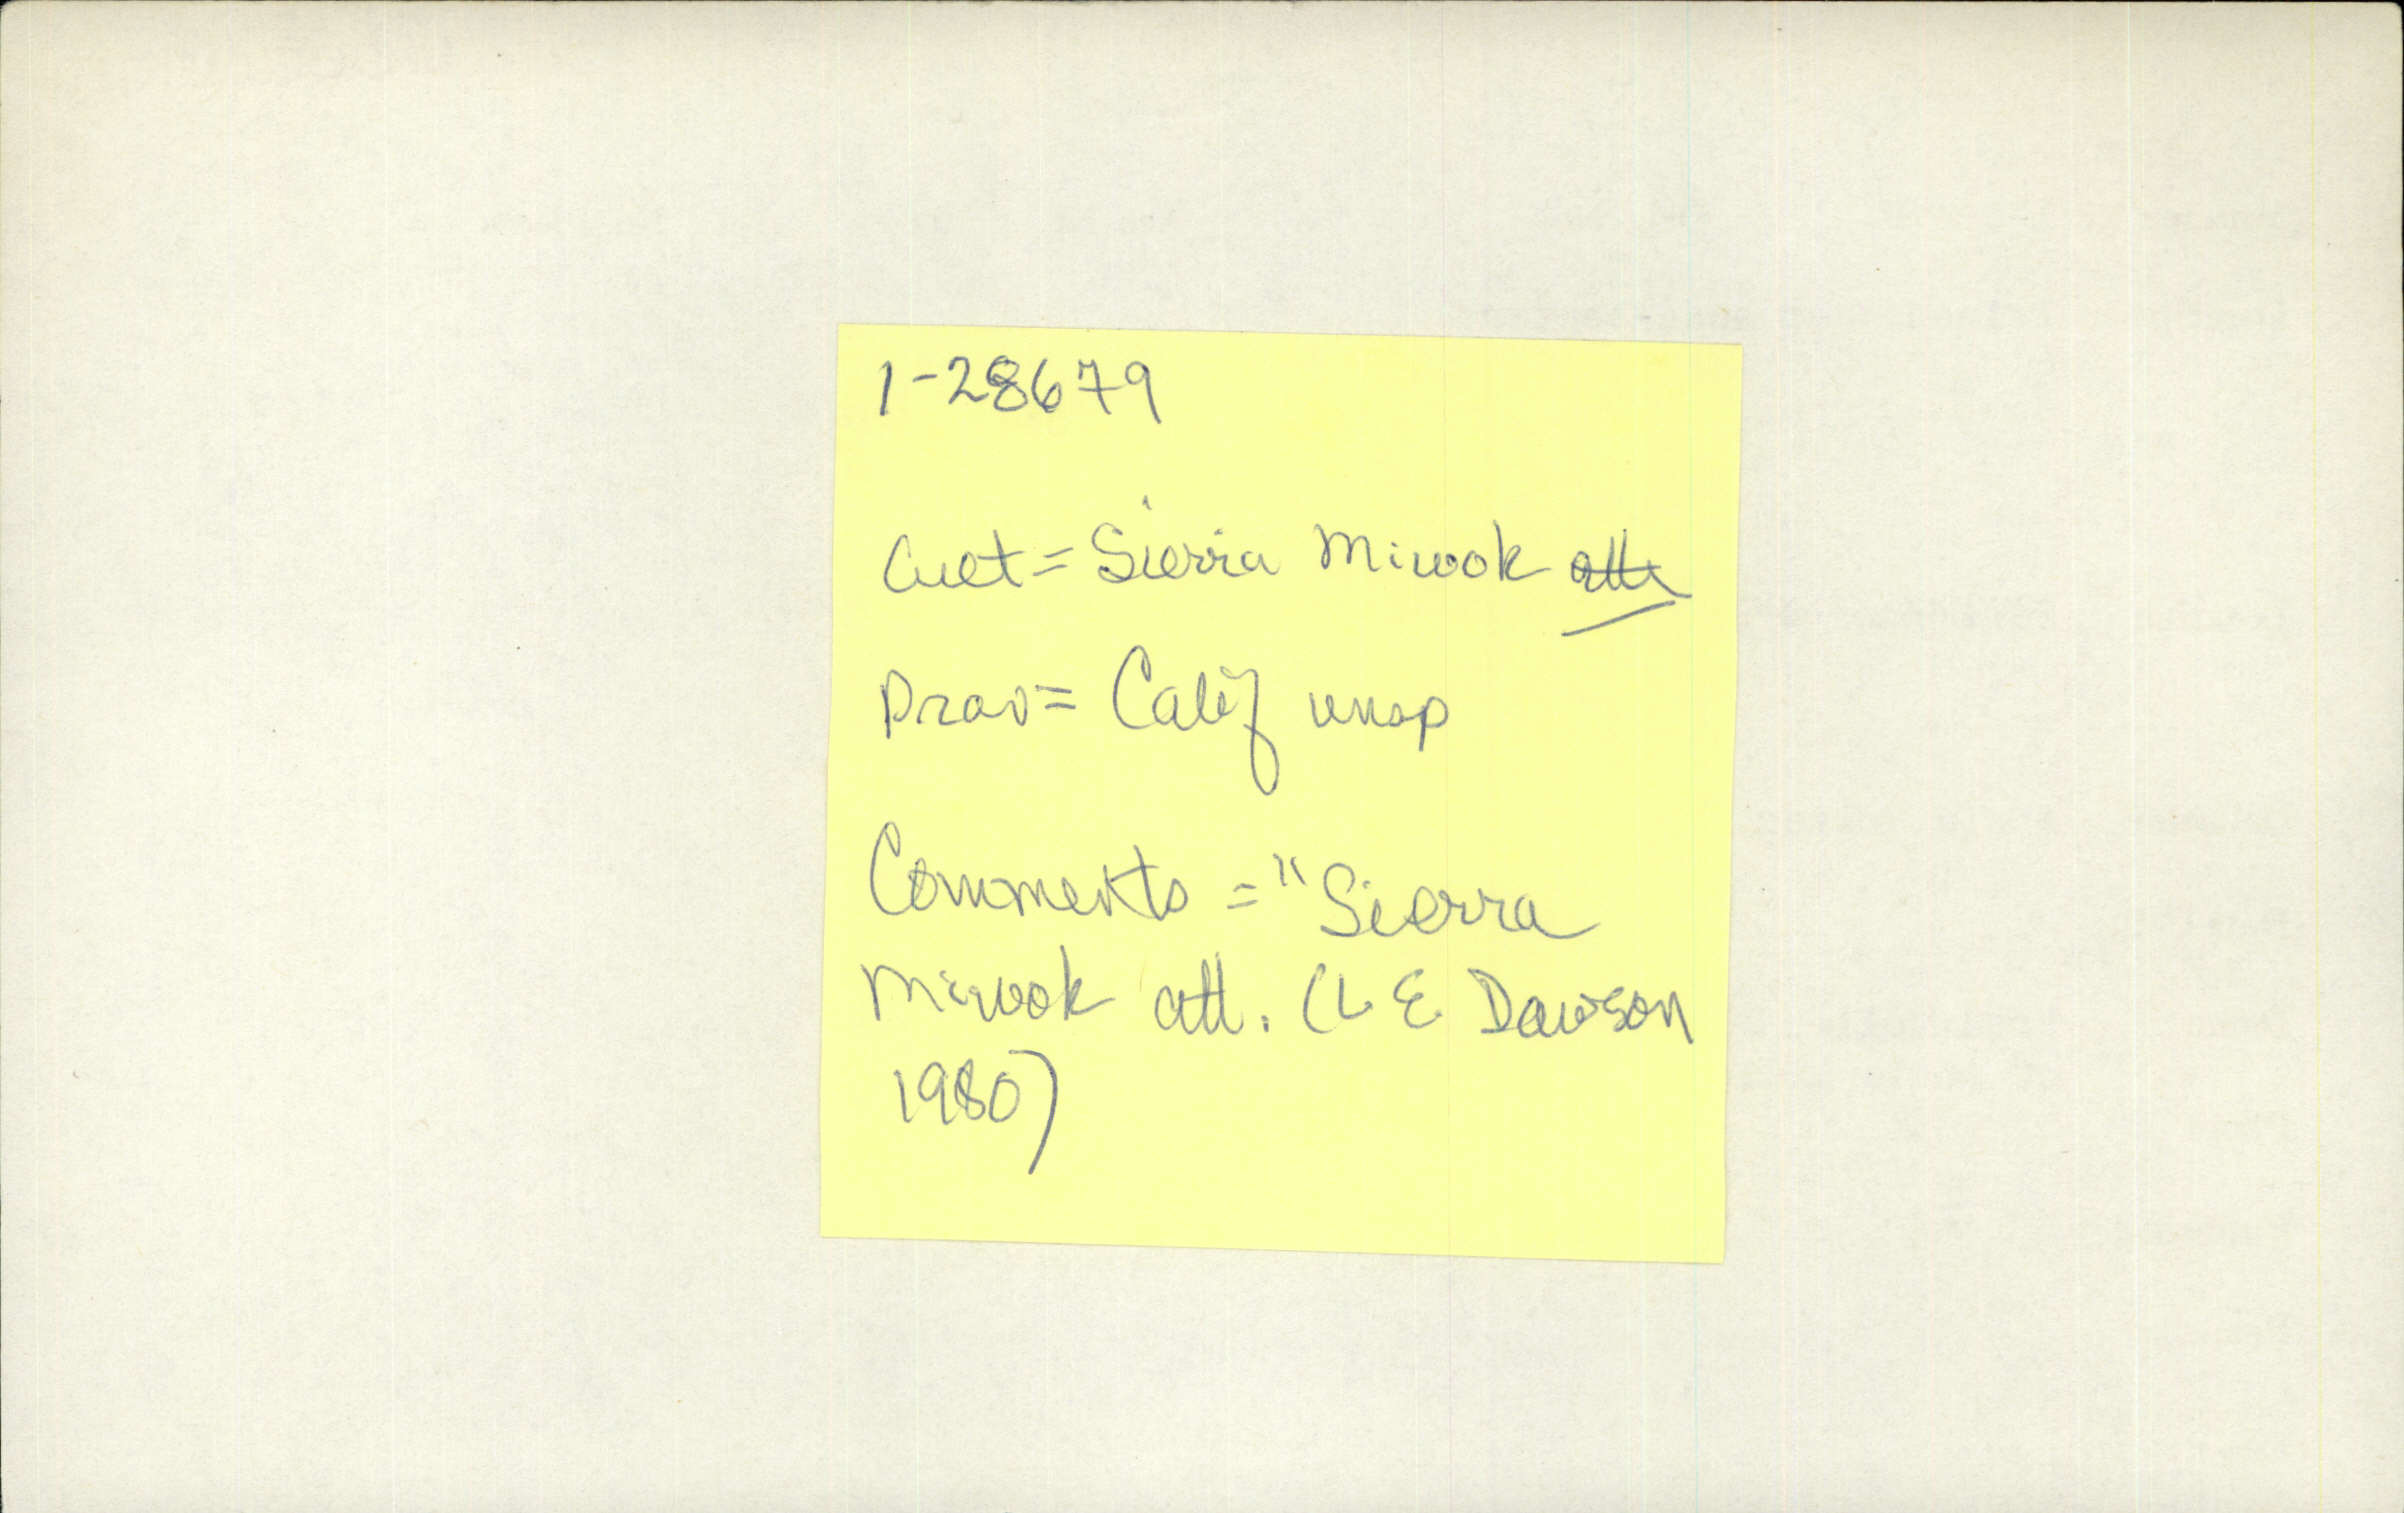 1-28679
Cult = Sierra Miwok att
Prov = Calif unsp
Comments = "Sierra
Miwok att. (L E Dawson
1980)